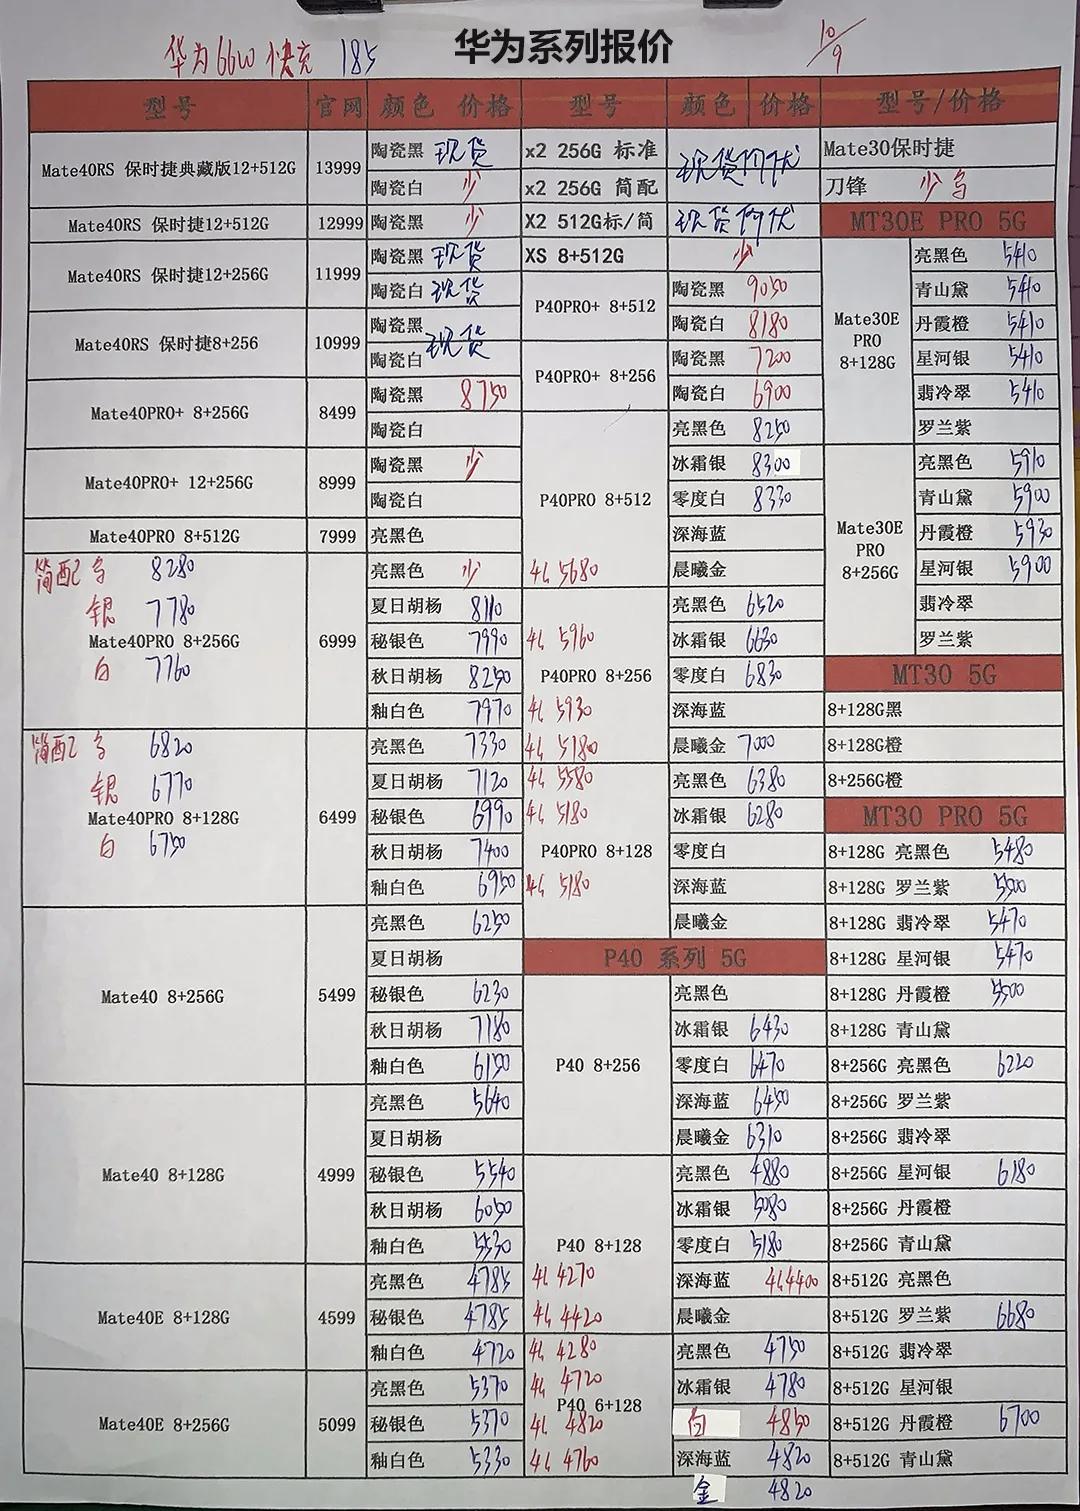 华为系列报价
华为66W快充 185
10/9
型号 官网 颜色 价格 型号 颜色 价格 型号/价格
Mate40RS 保时捷典藏版12+512G 13999 陶瓷黑 现货 x2 256G 标准 现货价优 Mate30保时捷
陶瓷白 少 x2 256G 简配 刀锋 少
Mate40RS 保时捷12+512G 12999 陶瓷黑 少 X2 512G标/简 现货价优 MT30E PRO 5G
Mate40RS 保时捷12+256G 11999 陶瓷黑 现货 XS 8+512G 少 Mate30E PRO 8+128G 亮黑色 5410
陶瓷白 现货 P40PRO+ 8+512 陶瓷黑 9050 青山黛 5410
Mate40RS 保时捷8+256 10999 陶瓷黑 现货 陶瓷白 8180 丹霞橙 5410
陶瓷白 P40PRO+ 8+256 陶瓷黑 7200 星河银 5410
Mate40PRO+ 8+256G 8499 陶瓷黑 8750 陶瓷白 6900 翡冷翠 5410
陶瓷白 P40PRO 8+512 亮黑色 8250 罗兰紫
Mate40PRO+ 12+256G 8999 陶瓷黑 少 冰霜银 8300 Mate30E PRO 8+256G 亮黑色 5910
陶瓷白 零度白 8330 青山黛 5900
Mate40PRO 8+512G 7999 亮黑色 深海蓝 丹霞橙 5930
简配 8280 亮黑色 少 4G 5680 晨曦金 星河银 5900
银 7780 夏日胡杨 8110 亮黑色 6520 翡冷翠
Mate40PRO 8+256G 6999 秘银色 7990 4G 5960 冰霜银 6630 罗兰紫
白 7760 秋日胡杨 8250 P40PRO 8+256 零度白 6830 MT30 5G
釉白色 7970 4G 5930 深海蓝 8+128G黑
简配 6820 亮黑色 7330 4G 5180 晨曦金 7000 8+128G橙
银 6770 夏日胡杨 7120 4G 5580 亮黑色 6380 8+256G橙
Mate40PRO 8+128G 6499 秘银色 6990 4G 5180 冰霜银 6280 MT30 PRO 5G
白 6750 秋日胡杨 7400 P40PRO 8+128 零度白 8+128G 亮黑色 5480
釉白色 6950 4G 5180 深海蓝 8+128G 罗兰紫 5500
Mate40 8+256G 5499 亮黑色 6250 晨曦金 8+128G 翡冷翠 5470
夏日胡杨 P40 系列 5G 8+128G 星河银 5470
秘银色 6230 P40 8+256 亮黑色 8+128G 丹霞橙 5500
秋日胡杨 7180 冰霜银 6430 8+128G 青山黛
釉白色 6150 零度白 6470 8+256G 亮黑色 6220
Mate40 8+128G 4999 亮黑色 5640 深海蓝 6450 8+256G 罗兰紫
夏日胡杨 晨曦金 6310 8+256G 翡冷翠
秘银色 5540 P40 8+128 亮黑色 4880 8+256G 星河银 6180
秋日胡杨 6050 冰霜银 5080 8+256G 丹霞橙
釉白色 5530 零度白 5180 8+256G 青山黛
Mate40E 8+128G 4599 亮黑色 4785 4G 4270 深海蓝 4G4400 8+512G 亮黑色
秘银色 4785 4G 4420 晨曦金 8+512G 罗兰紫 6680
釉白色 4720 4G 4280 亮黑色 4750 8+512G 翡冷翠
Mate40E 8+256G 5099 亮黑色 5370 4G 4720 P40 6+128 冰霜银 4780 8+512G 星河银
秘银色 5370 4G 4820 白 4850 8+512G 丹霞橙 6700
釉白色 5330 4G 4760 深海蓝 4820 8+512G 青山黛
金 4820